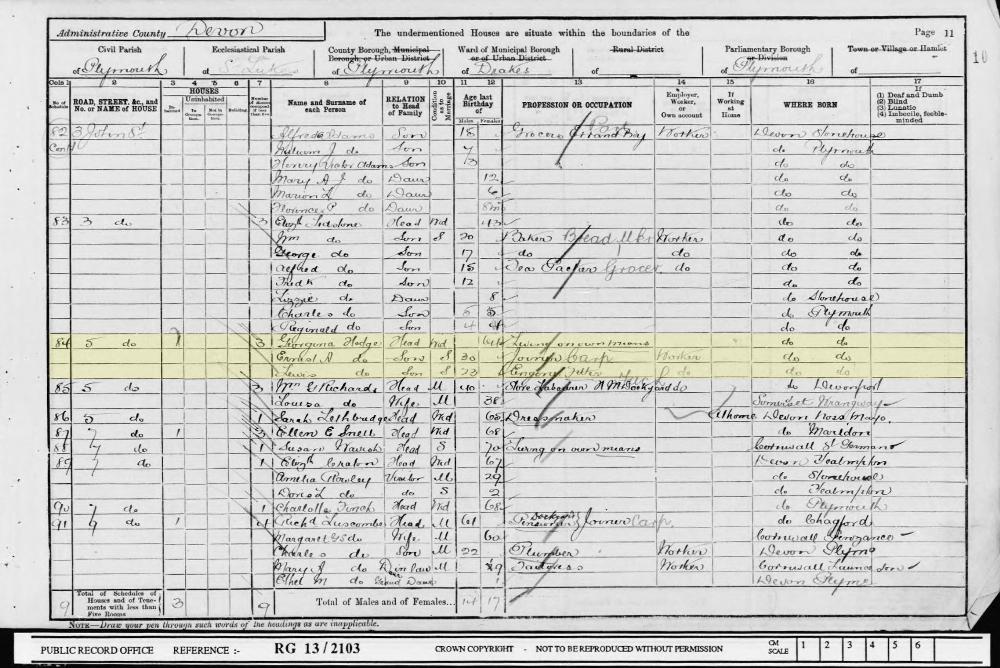 Administrative County Devon The undermentioned Houses are situate within the boundaries of the Page 11
10
Civil Parish Ecclesiastical Parish County Borough, Municipal Borough, or Urban District Ward of Municipal Borough or of Urban District Rural District Parliamentary Borough or Division Town or Village or Hamlet
of Plymouth of St Lukes of Plymouth of Drakes of of Plymouth of
Cols 1 2 3 4 5 6 7 8 9 10 11 12 13 14 15 16 17
No. of Schedule ROAD, STREET, &c., and No. or NAME of HOUSE HOUSES Inhabited Uninhabited In Occupation Not in Occupation Building Name and Surname of each Person RELATION to Head of Family Condition as to Marriage Age last Birthday of Males Females PROFESSION OR OCCUPATION Employer, Worker, or Own account If Working at Home WHERE BORN If (1) Deaf and Dumb (2) Blind (3) Lunatic (4) Imbecile, feeble-minded
82 3 John St Alfred Adams Son 15 Grocers Errand Boy Worker Devon Stonehouse
Contd William J do Son 7 do Plymouth
Henry Adams Son 3 do do
Mary A J do Daur 12 do do
Marion L do Daur 6 do do
Florence P do Daur 8m do do
83 3 do 3 Head Wd 43 do do
Wm do Son S 20 Baker Bread Mkr Worker do do
George do Son 17 do do do do do
Alfred do Son 15 Tea Packer Grocer do do do
Fredk do Son 12 do do
Lizzie do Daur 8 do Stonehouse
Charles do Son 5 do Plymouth
Reginald do Son 4 do do
84 5 do 1 3 Georgina Hodge Head Wd 64 Living on own means do do
Ernest A do Son S 30 Joiner Carp Worker do do
Lewis do Son S 23 Engine Fitter do do do
85 5 do 3 Wm G Richards Head M 40 Store Labourer H M Dockyard do do Devonport
Louisa do Wife M 38 Somerset Wrangway
86 5 do 1 Sarah Lethbridge Head Wd 65 Dressmaker At home Devon Noss Mayo
87 7 do 1 Ellen E Snell Head Wd 68 do Marldon
88 7 do 1 Susan Head S 70 Living on own means Cornwall St Germans
89 7 do 1 Elizth Head Wd 67 Devon Yealmpton
Amelia Rowley Visitor M 29 do Stonehouse
Doris L do do S 2 do Yealmpton
90 7 do 1 Charlotte Finch Head Wd 68 do Plymouth
91 9 do 1 4 Richd Luscombe Head M 61 Dockyard Pensioner Joiner Carp. do Chagford
Margaret do Wife M 60 Cornwall Penzance
Charles do Son M 22 Plumber Worker Devon Plym
Mary J do Dau in law M 29 Tailoress Worker Cornwall Launceston
Ethel M do Grand Daur 1 Devon Plym
9 Total of Schedules of Houses and of Tenements with less than Five Rooms 3 9 Total of Males and of Females... 14 17
NOTE—Draw your pen through such words of the headings as are inapplicable.
PUBLIC RECORD OFFICE REFERENCE :- RG 13 / 2103 CROWN COPYRIGHT - NOT TO BE REPRODUCED WITHOUT PERMISSION CM SCALE 1 2 3 4 5 6